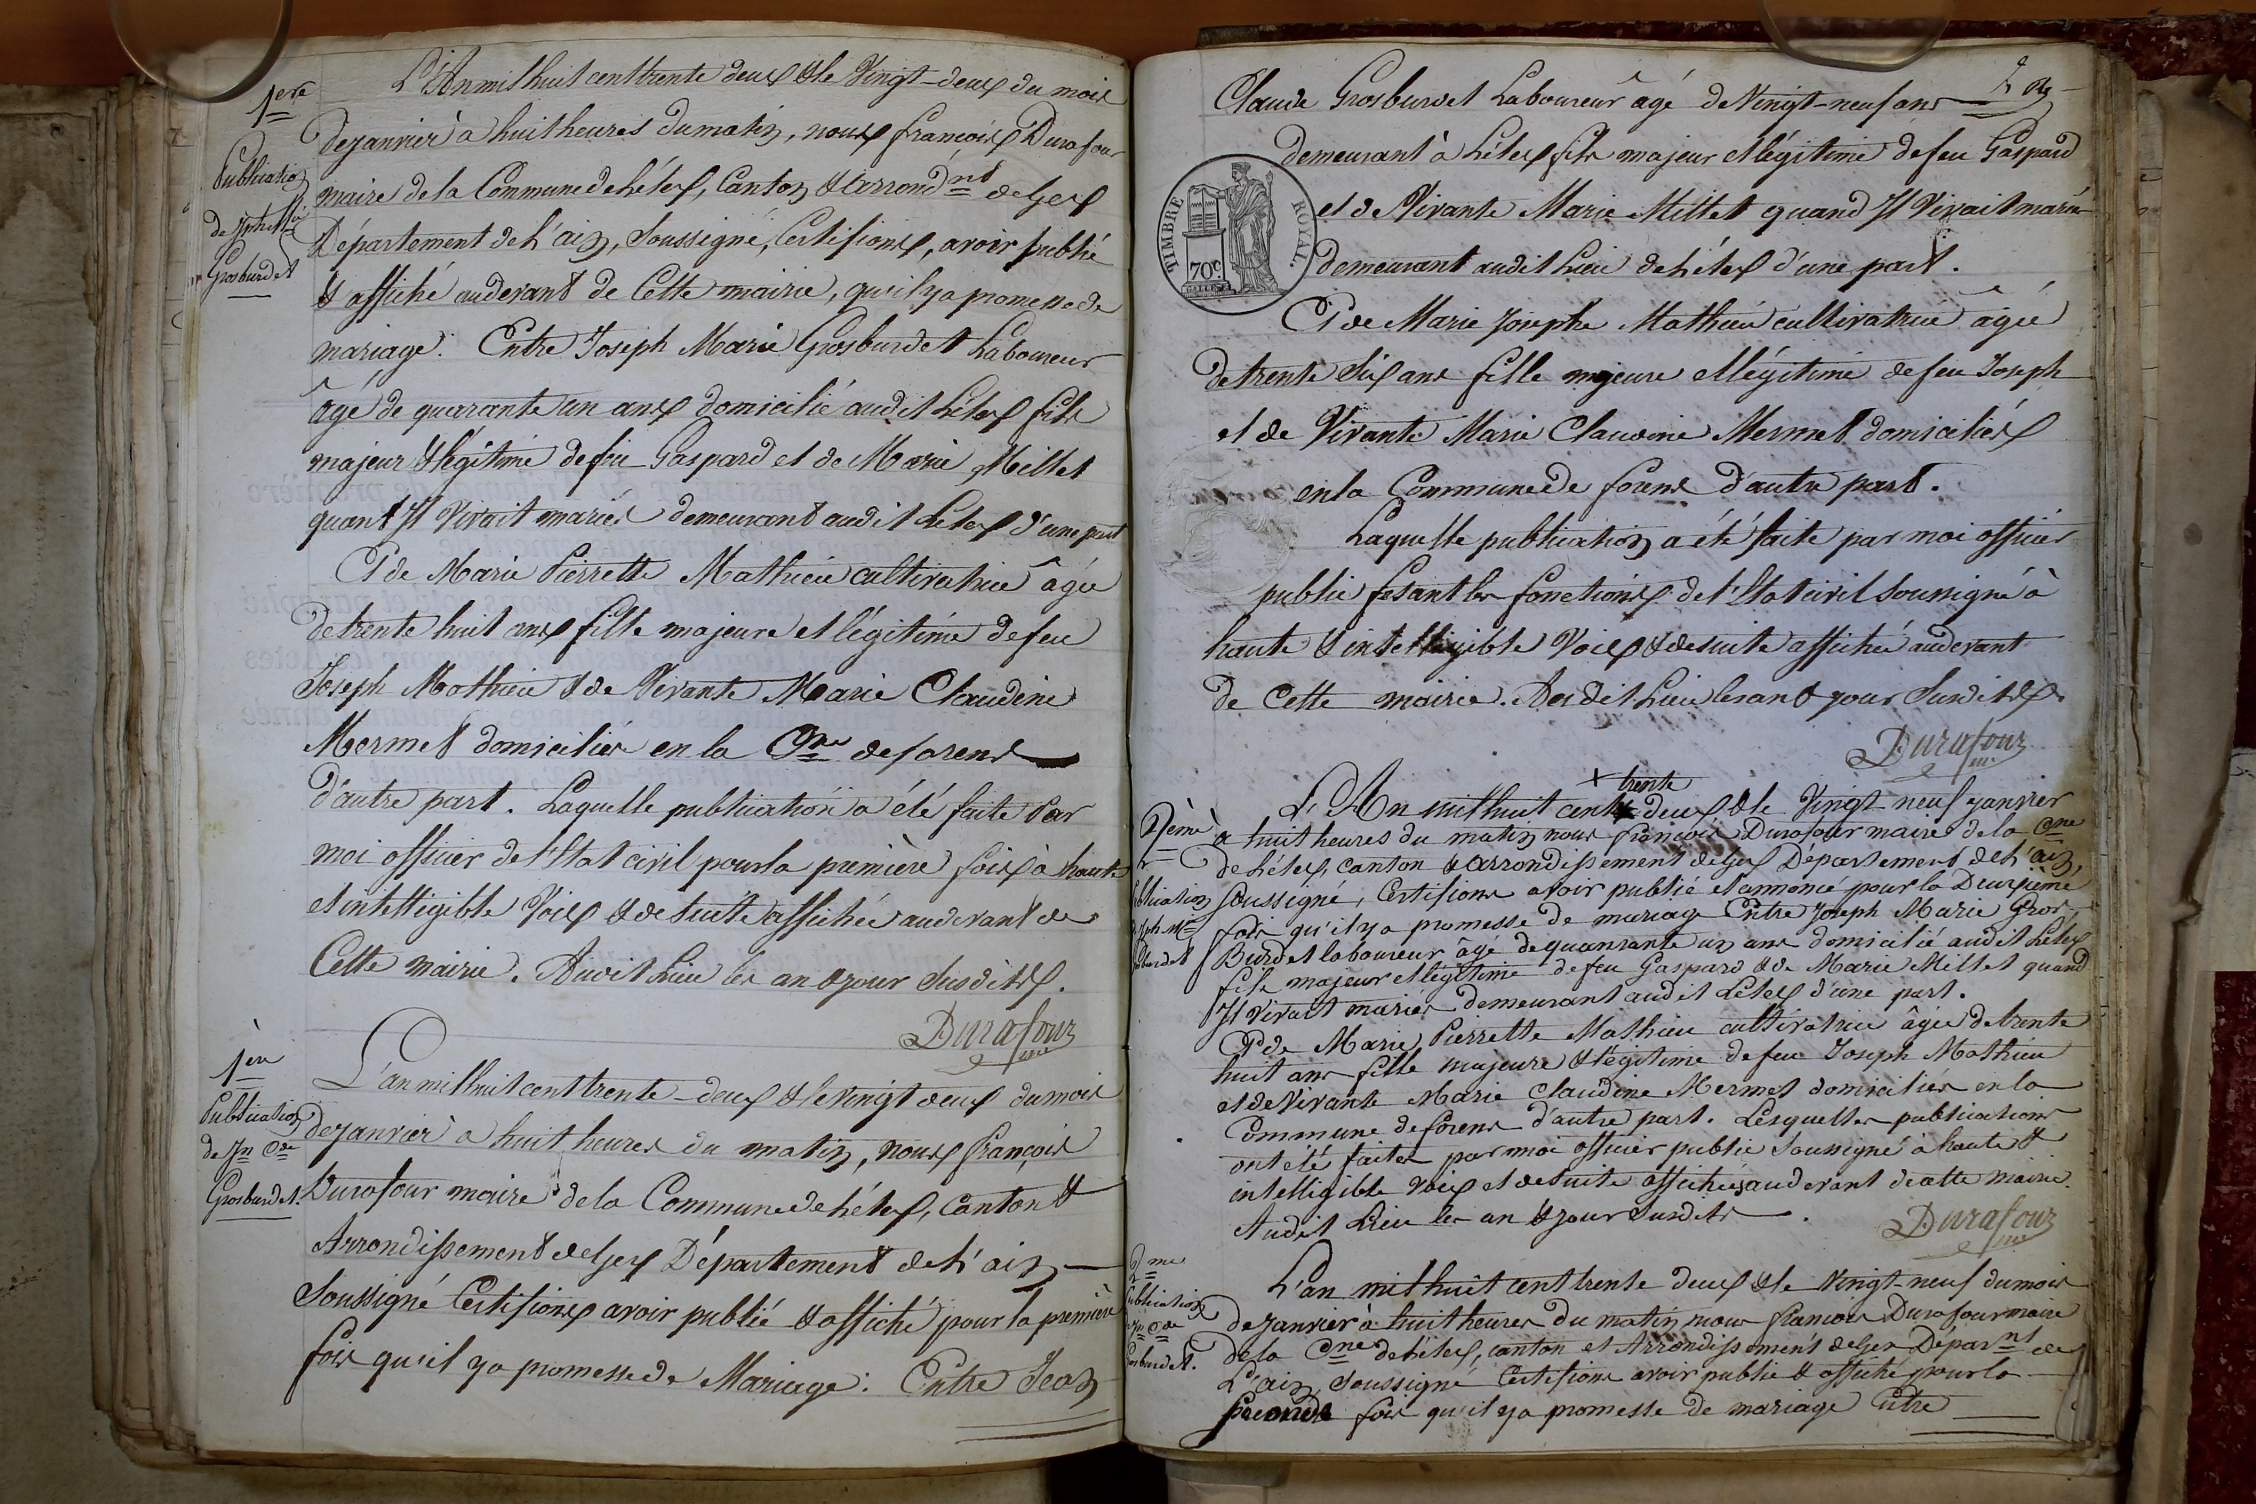 1ere
Publication
de Jph Mie
Grosburdet
L'An mil huit cent trente deux & le Vingt-deux du mois
de janvier à huit heures du matin, nous françois Durafour
maire de la Commune de Lélex, Canton & arrondnt de Gex
Département de L'ain, Soussigné, Certifions, avoir publié
& affiché au devant de Cette mairie, qu'il y a promesse de
mariage: Entre Joseph Marie Grosburdet Laboureur
âgé de quarante un ans domicilié audit Lélex fils
majeur & légitime de feu Gaspard et de Marie Millet
quant Il Vivait mariés demeurant audit Lelex d'une part
Et de Marie Pierrette Mathieu cultivatrice âgée
de trente huit ans fille majeure et légitime de feu
Joseph Mathieu & de Vivante Marie Claudine
Mermet domiciliés en la Cne de forens
d'autre part. Laquelle publication a été faite Par
moi officier de l'Etat civil pour la première fois à haute
et intelligible Voix & de suite affichée au devant de
Cette mairie. Audit Lieu les an & jour Susdits.
Durafour
me
1ère
Publication
de Jn Cde
Grosburdet.
L'an mil huit cent trente-deux & le vingt deux du mois
de janvier à huit heures du matin, nous françois
Durafour maire de la Commune de Lélex, Canton &
Arrondissement de Gex Département de L'ain
Soussigné Certifions avoir publié & affiché pour la première
fois qu'il y a promesse de Mariage: Entre Jean
Claude Grosburdet Laboureur âgé de Vingt-neuf ans
demeurant à Lélex fils majeur et légitime de feu Gaspard
et de Vivante Marie Millet quand Il Vivait mariés
demeurant audit Lieu de Lélex d'une part.
TIMBRE ROYAL.
70c.
Et de Marie Josephe Mathieu cultivatrice âgée
de trente Six ans fille majeure et légitime de feu Joseph
et de Vivante Marie Claudine Mermet domiciliés
en la Commune de forens d'autre part.
Laquelle publication a été faite par moi officier
public fesant les fonctions de l'Etat civil soussigné à
haute & intelligible Voix & de suite affichée au devant
de Cette mairie. Audit Lieu les an & jour Susdits.
Durafour
me
2ème
ublication
Jph Mie
burdet
+ trente
L'An mil huit cent + deux & le Vingt-neuf janvier
à huit heures du matin nous françois Durafour maire de la Cne
de Lélex, canton & arrondissement de Gex Département de L'ain,
Soussigné, Certifions avoir publié et annoncé pour la Deuxième
fois qu'il y a promesse de mariage Entre Joseph Marie Gros-
Burdet laboureur âgé de quanrante un ans domicilié audit Lelex
fils majeur et légitime de feu Gaspard & de Marie Millet quand
Il Vivait mariés demeurant audit Lelex d'une part.
Et de Marie Pierrette Mathieu cultivatrice âgée de trente
huit ans fille majeure & légitime de feu Joseph Mathieu
et de Vivante Marie Claudine Mermet domiciliés en la
Commune de forens d'autre part. Lesquelles publications
ont été faites par moi officier public Soussigné à haute &
intelligible voix et de suite affichées au devant de cette mairie.
Audit Lieu les an & jour Susdits.
Durafour
me
2me
ublication
Jn Cde
osburdet.
L'an mil huit cent trente deux & le vingt-neuf du mois
de janvier à huit heures du matin nous francois Durafour maire
de la Cne de Lélex, canton et Arrondissement de Gex Déparnt de
L'ain, Soussigné Certifions avoir publié & affiché pour la
seconde fois qu'il y a promesse de mariage Entre